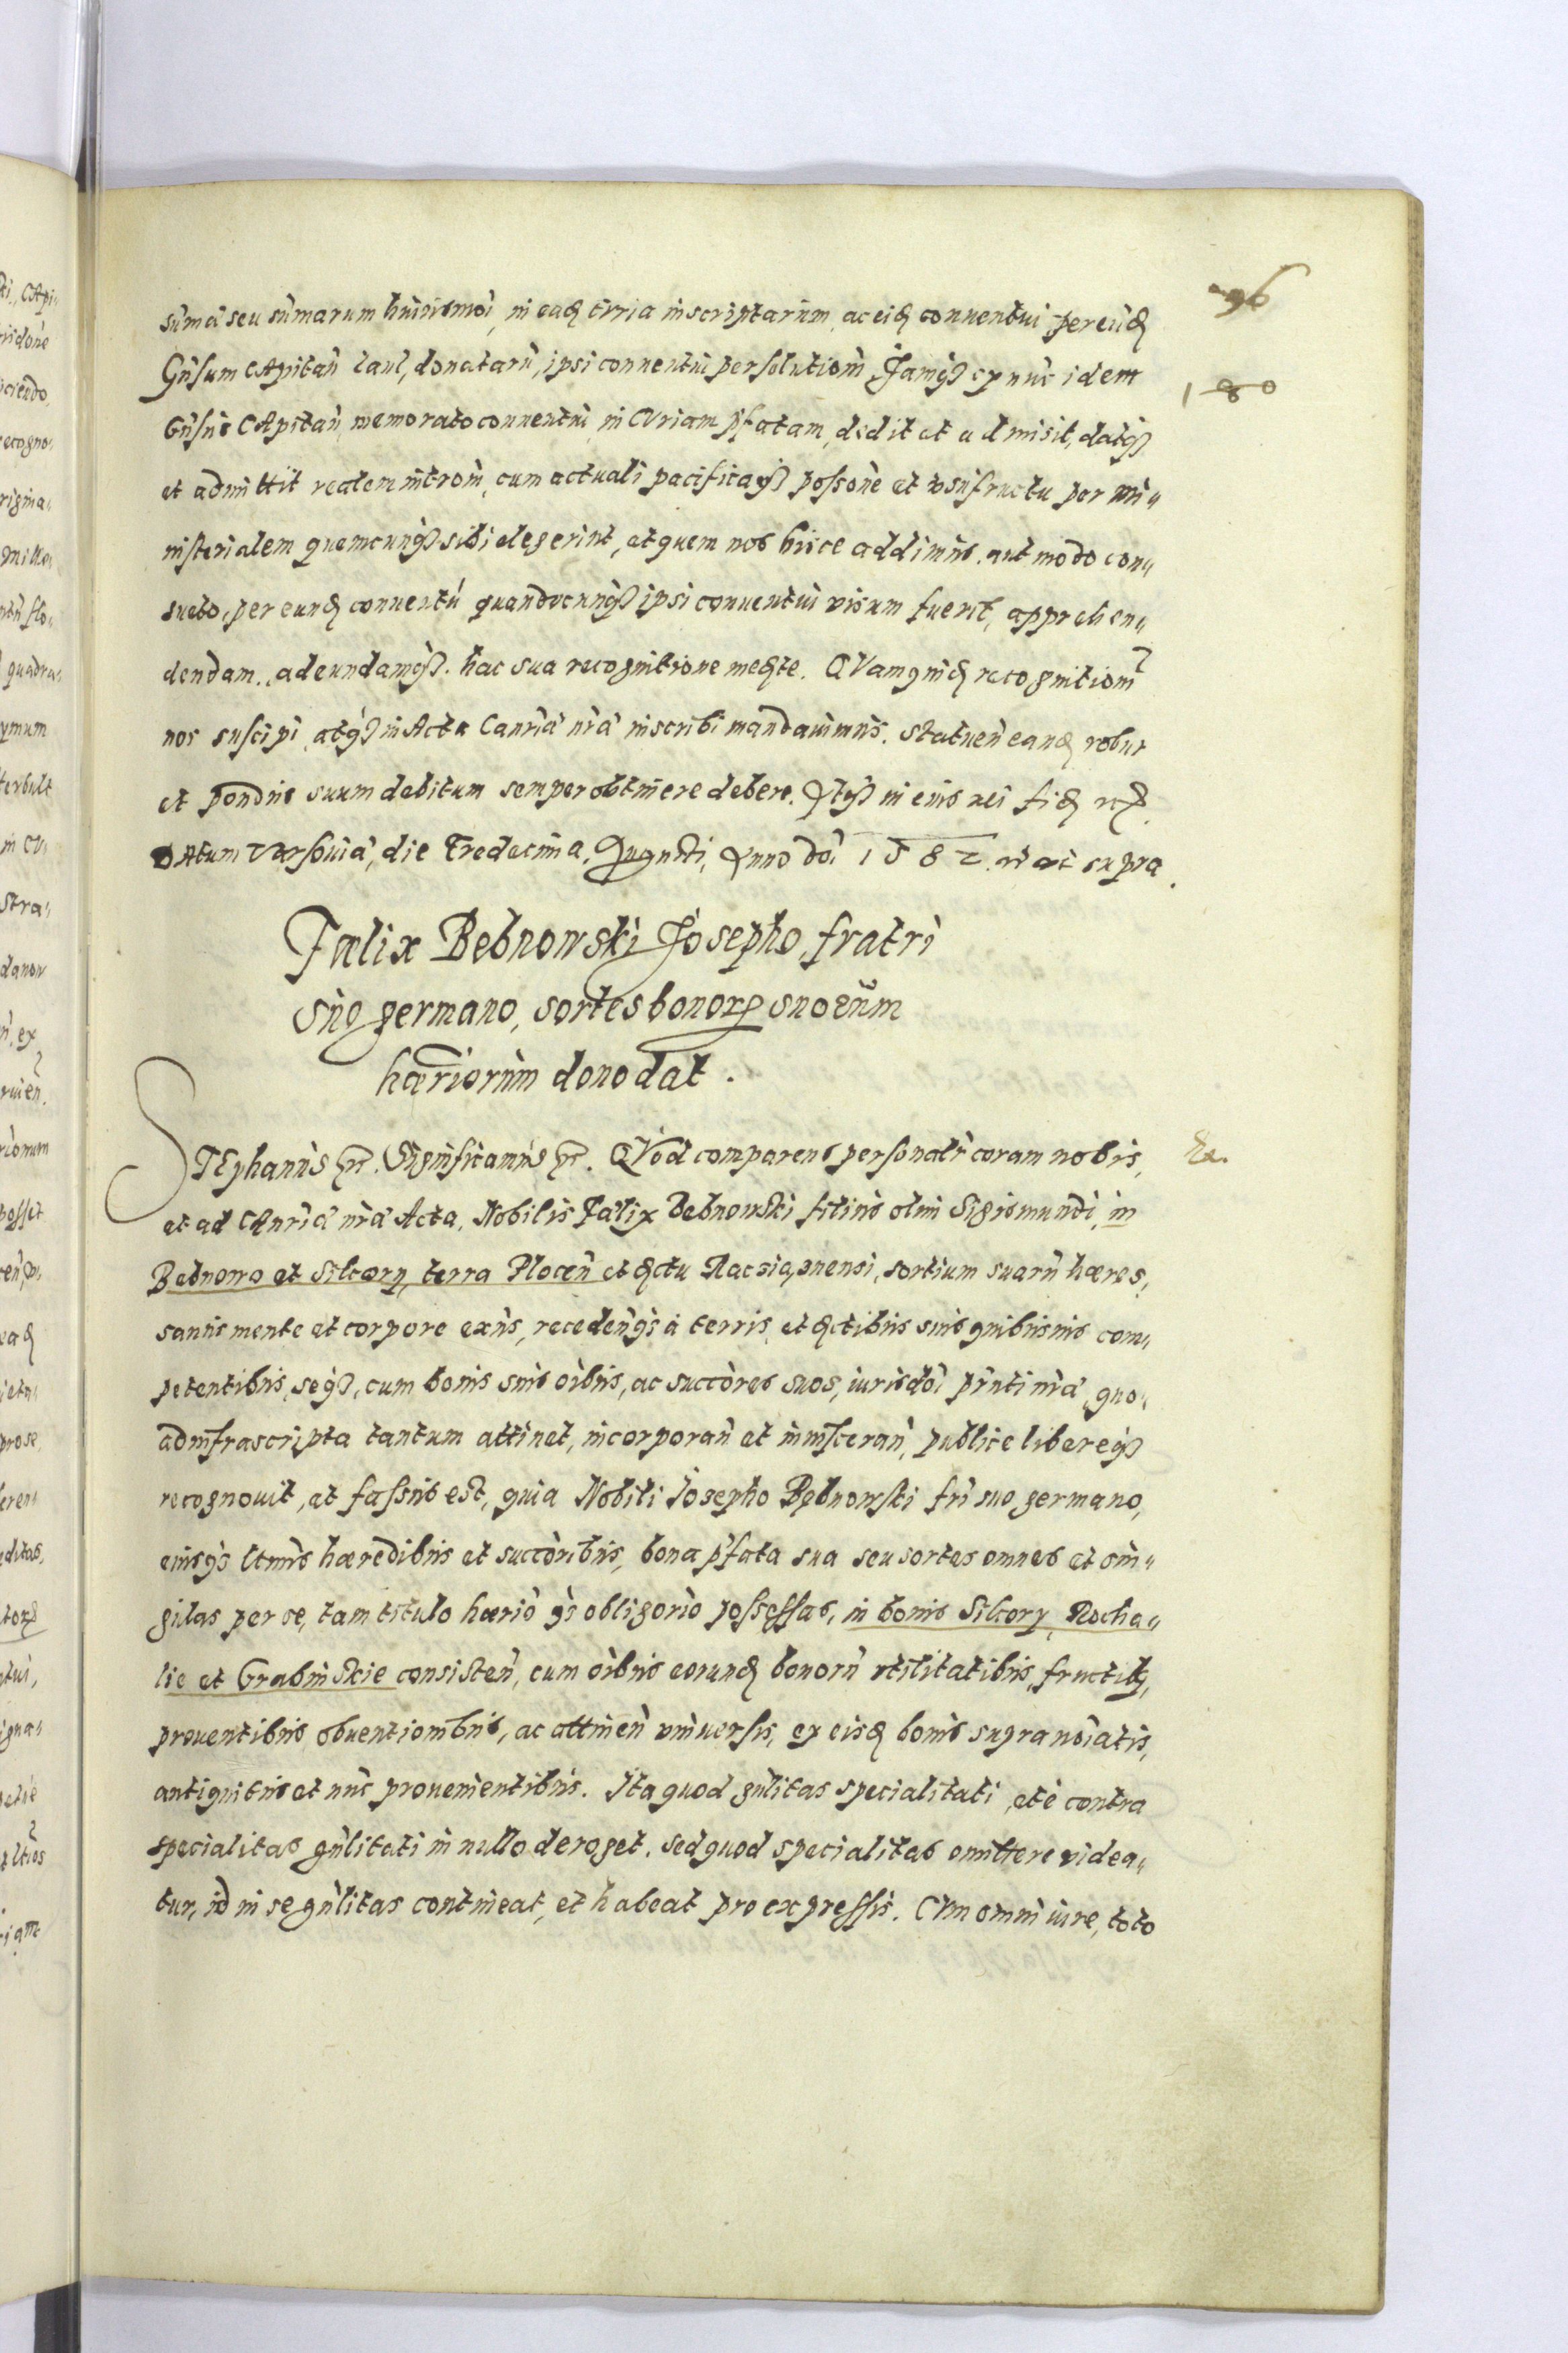 96
sūma seu sūmarum huiusmōi, in eadꝫ Cŭria inscriptarum, ac eidꝫ conuentui per eūdꝫ
180
Gñsum CApitañ Laui, donatarū, ipsi conuentui persolutioñ, Jamqꝫ ex nūc idem
Gñsus CApitañ, memorato conuentui, in CVriam pͬfatam, dedit et admisit, datqꝫ
et admittit realem introm̄, cum actuali pacificaqꝫ possōne et vsufructu per Mi„
nisterialem quemcunqꝫ sibi elegerint, et quem nos hisce addimus. aut modo con„
sueto, per eundꝫ conuentū quandocunqꝫ ipsi conuentui visum fuerit, apprehen„
dendam, adeundamqꝫ. hac sua recognitione medꝫte. QVamquidꝫ recognitionem̄
nos suscipi atqꝫ in Acta Canrīæ nr̄æ inscribi mandauimus. Statueñ eandꝫ robur
et pondus suum debitum semper obtinere debere. Inqꝫ in eius rei fidꝫ rc̄.
DAtum Varsouiæ, die Tredecima, Augusti, Anno dōi 1582. rñi vt supra.
Fælix Bebnowski Josepho fratri
suo germano, sortes bonorꝝ suorūm
hæriorum dono dat.
STEphanus rc̄. Significamus rc̄. QVod comparens personalr̄ coram nobis,
et ad CAnrīæ nr̄æ Acta, Nobilis Fælix Bebnowski filius olim Sigismundi, in
Bebnowo et Silcory, terra Plocen̄ et dꝫctu Raciąznensi, sortium suarū hæres,
sanus mente et corpore exn̄s, recedenqꝫ à terris, et dꝫctibus suis quibusuis com„
petentibus, seqꝫ, cum bonis suis oībus, ac succōres suos, iurisdōi pn̄ti nr̄æ, quo„
ad infrascripta tantum attinet, incorporañ et inuisceran̄, publice libereqꝫ
recognouit, et fassus est, quia Nobili Josepho Bębnowski frī suo germano,
eiusqꝫ ltimis hæredibus et succōribus, bona pͬfata sua seu sortes omnes et sin„
gulas per se, tam titulo hærio qꝫ obligorio possessas, in bonis Silcory, Rocha„
lie et Grabinskie consisten̄, cum oībus eorundꝫ bonorū vtilitatibus, fructibꝫ,
prouentibus obuentionibus, ac attinen̄ vniuersis, ex eisdꝫ bonis supranōiatis,
antiquitus et nūc prouenientibus. Ita quod gnr̄litas specialitati, et è contra
specialitas gnr̄litati in nullo deroget. sed quod specialitas omittere videa„
tur, id in se gnr̄litas contineat, et habeat pro expressis. CVm omni iure, toto